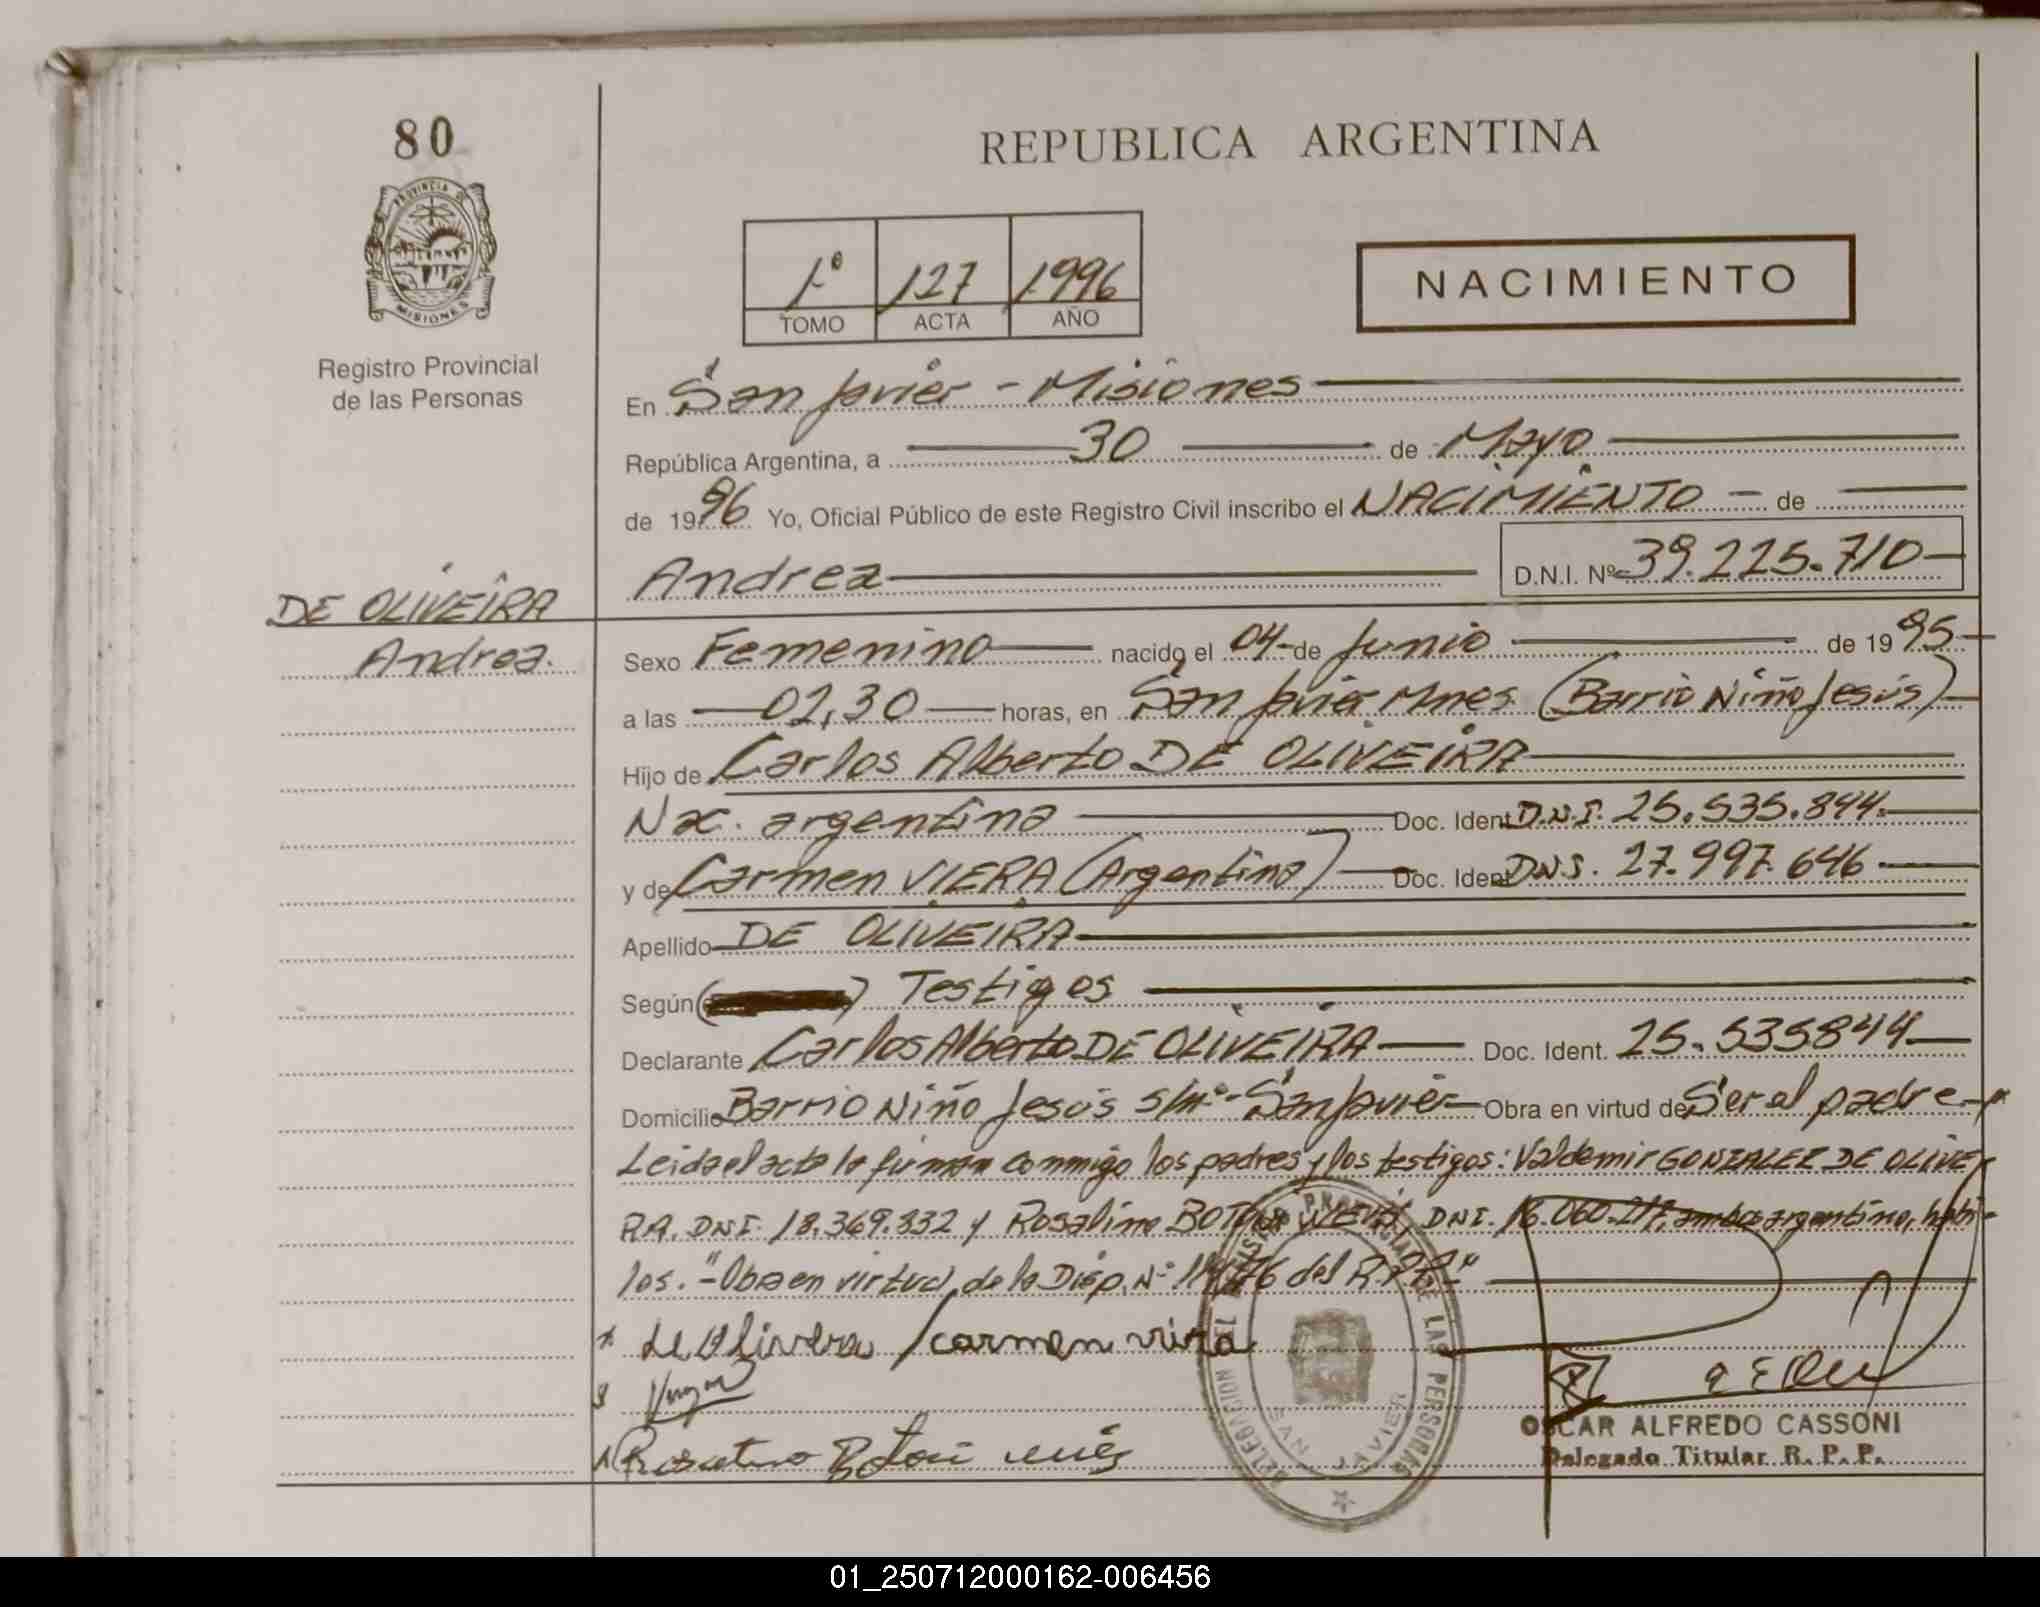 80
PROVINCIA DE
MISIONES
Registro Provincial
de las Personas
REPUBLICA ARGENTINA
1º 127 1996
TOMO ACTA AÑO
NACIMIENTO
En San Javier - Misiones
República Argentina, a 30 de Mayo
de 1996 Yo, Oficial Público de este Registro Civil inscribo el NACIMIENTO - de
Andrea D.N.I. Nº 39.225.710
DE OLIVEIRA
Andrea.
Sexo Femenino nacido el 04 de Junio de 1995
a las 02,30 horas, en San Javier Mnes (Barrio Niño Jesús)
Hijo de Carlos Alberto DE OLIVEIRA
Nac. argentina Doc. Ident D.N.I. 25.535.844.
y de Carmen VIERA (Argentina) Doc. Ident DNI. 27.997.646
Apellido DE OLIVEIRA
Según ( ) Testigos
Declarante Carlos Alberto DE OLIVEIRA Doc. Ident. 25.535844
Domicilio Barrio Niño Jesús s/nº - San Javier Obra en virtud de Ser el padre
Leida el acta la firman conmigo los padres y los testigos: Valdemir GONZALEZ DE OLIVE
RA. DNI. 18.369.832 y Rosalino DNI. ambos argentino, habi-
les. "-Obra en virtud de la Disp. Nº del R.P.P."
de Olivera carmen viera
DELEGACION DEL REGISTRO PROVINCIAL DE LAS PERSONAS
SAN JAVIER
OSCAR ALFREDO CASSONI
Delegado Titular R. P. P.
01_250712000162-006456